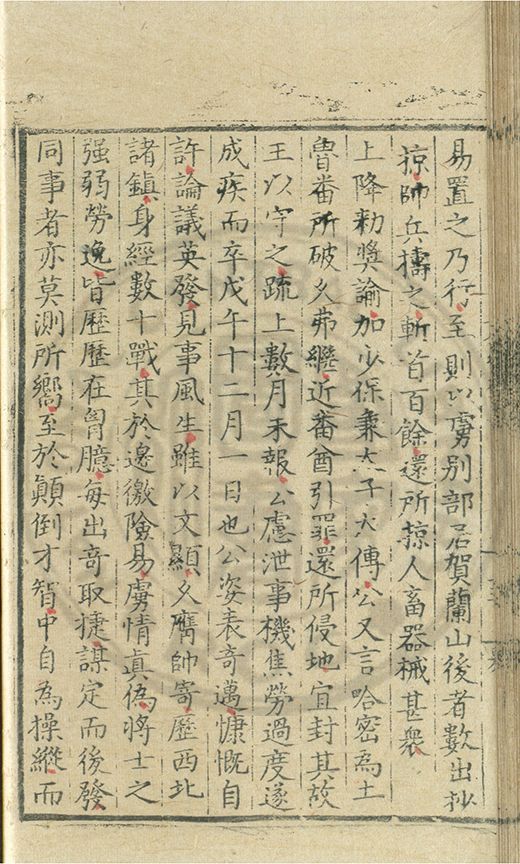 易置之乃行至則以虜别部居賀蘭山後者數出抄
掠帥兵擣之斬首百餘還所掠人畜器械甚衆
上降勑獎諭加少保兼太子太傅公又言哈密為土
魯番所破乆弗繼近番酋引罪還所侵地宜封其故
王以守之疏上數月未報公慮泄事機焦勞過度遂
成疾而卒戊午十二月一日也公姿表奇邁慷慨自
許論議英發見事風生雖以文顯乆膺帥寄歷西北
諸鎮身經數十戰其於邊徼險易虜情真偽將士之
强弱勞逸皆歷歷在胷臆每出奇取捷謀定而後發
同事者亦莫測所嚮至於顛倒才智中自為操縱而